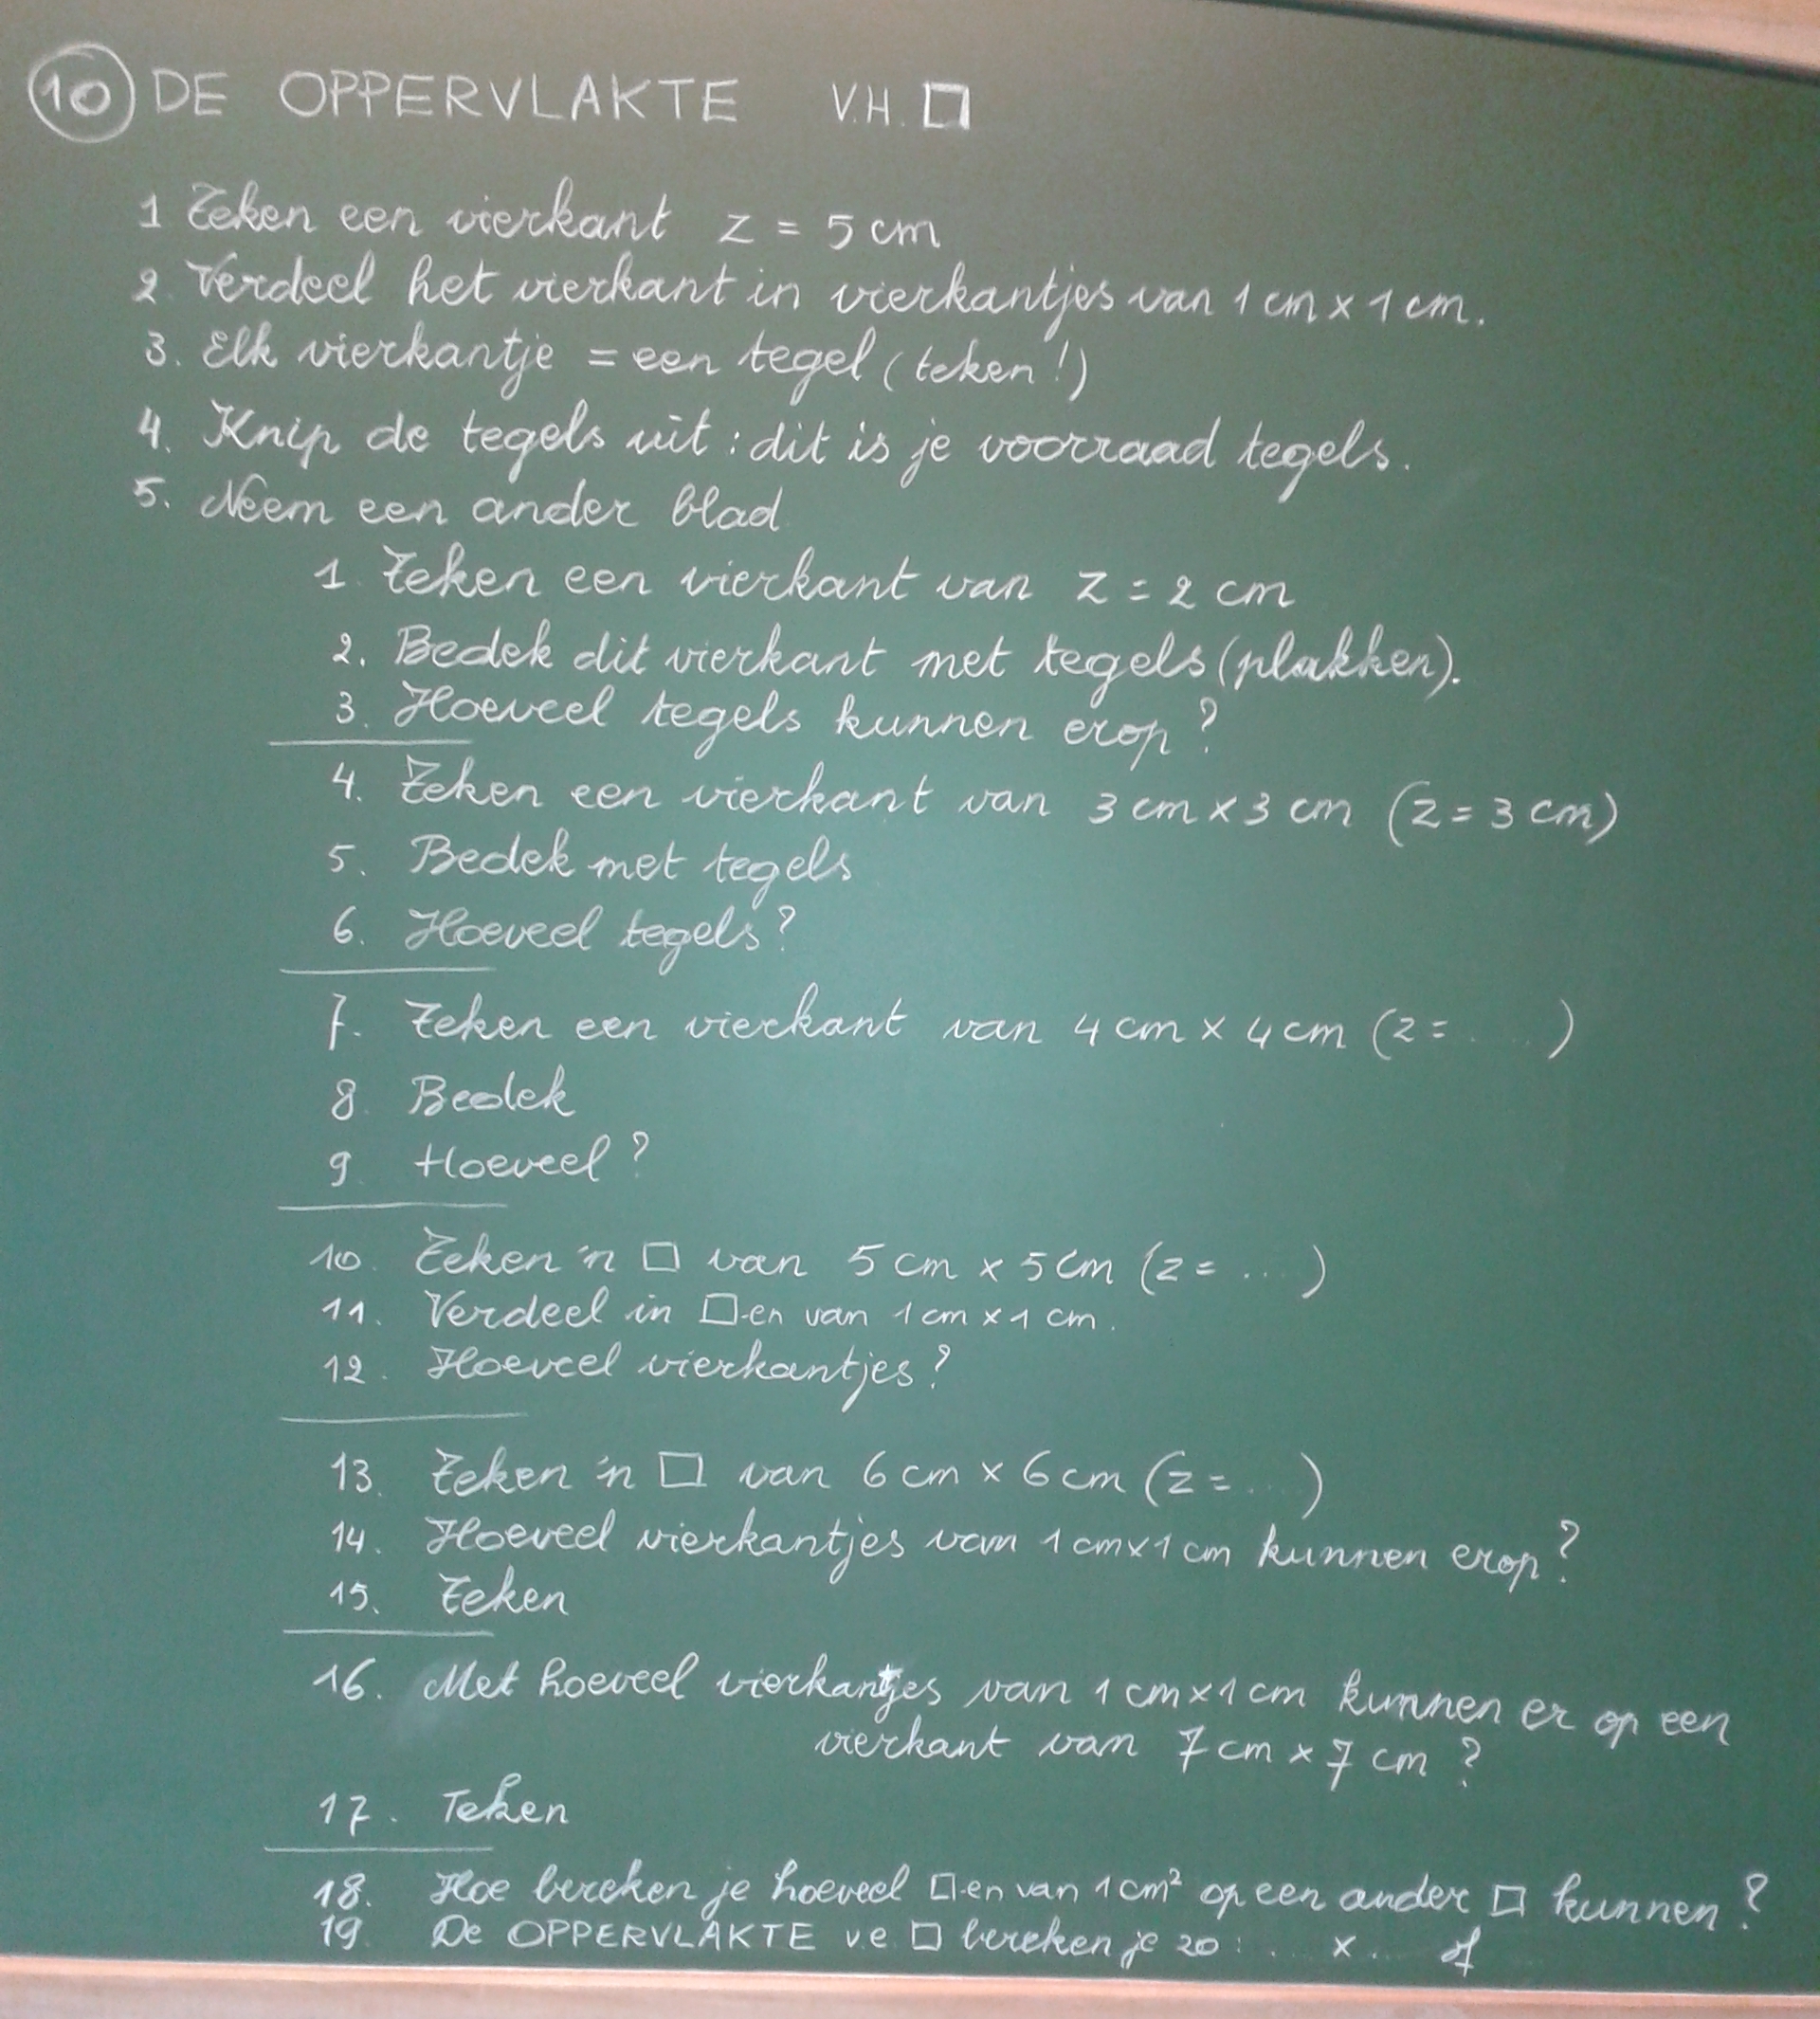 10 DE OPPERVLAKTE V.H. □
1 Teken een vierkant z = 5 cm
2. Verdeel het vierkant in vierkantjes van 1 cm x 1 cm.
3. Elk vierkantje = een tegel (teken!)
4. Knip de tegels uit : dit is je voorraad tegels.
5. Neem een ander blad
1. Teken een vierkant van z = 2 cm
2. Bedek dit vierkant met tegels (plakken).
3. Hoeveel tegels kunnen erop ?
4. Teken een vierkant van 3 cm x 3 cm (z = 3 cm)
5. Bedek met tegels
6. Hoeveel tegels?
7. Teken een vierkant van 4 cm x 4 cm (z = . . . )
8. Bedek
9. Hoeveel ?
10. Teken 'n □ van 5 cm x 5 cm (z = ... )
11. Verdeel in □-en van 1 cm x 1 cm.
12. Hoeveel vierkantjes?
13. Teken 'n □ van 6 cm x 6 cm (z = ... )
14. Hoeveel vierkantjes van 1 cm x 1 cm kunnen erop ?
15. Teken
16. Met hoeveel vierkantjes van 1 cm x 1 cm kunnen er op een
vierkant van 7 cm x 7 cm ?
17. Teken
18. Hoe bereken je hoeveel □-en van 1 cm² op een ander □ kunnen ?
19 De OPPERVLAKTE v.e. □ bereken je zo : ... x ... of